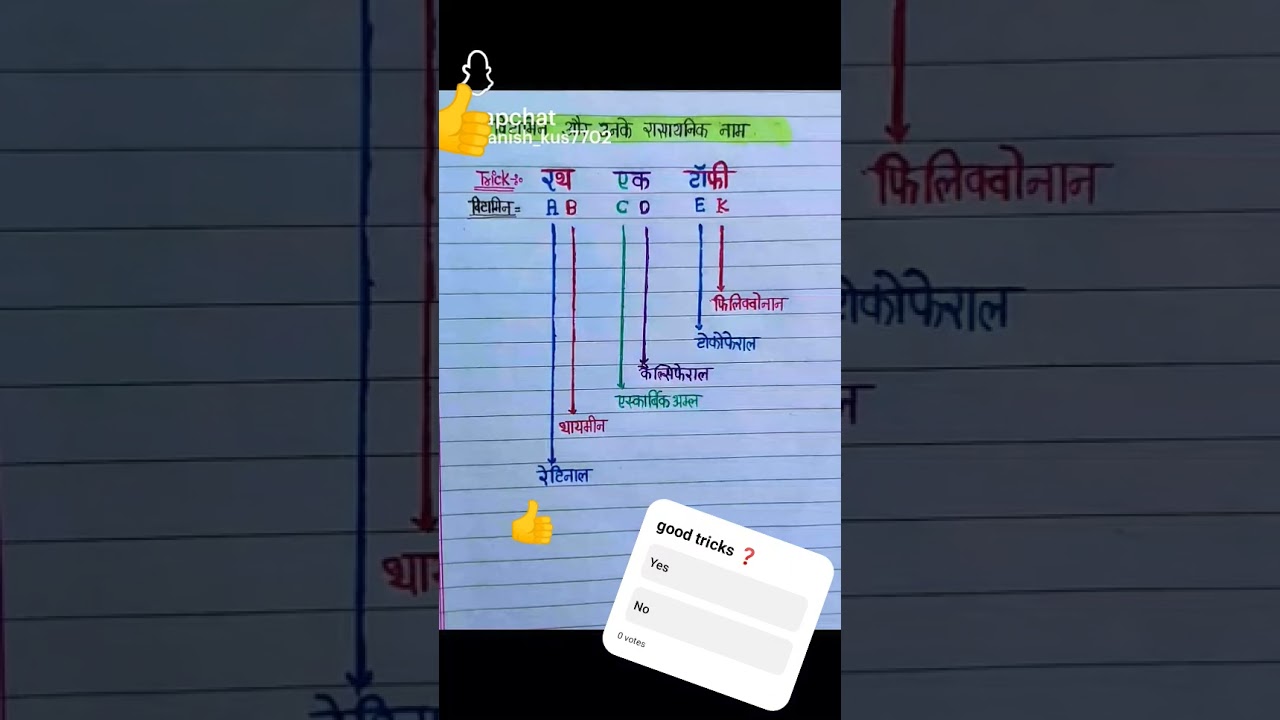 apchat
anish_kus7702
और उनके रासायनिक नाम
Trick:- रथ एक टॉफी
विटामिन = A B C D E K
फिलिक्वोनान
टोकोफेराल
कैल्सिफेराल
एस्कार्बिक अम्ल
थायमीन
रेटिनाल
good tricks ❓
Yes
No
0 votes
फिलिक्वोनान
टोकोफेराल